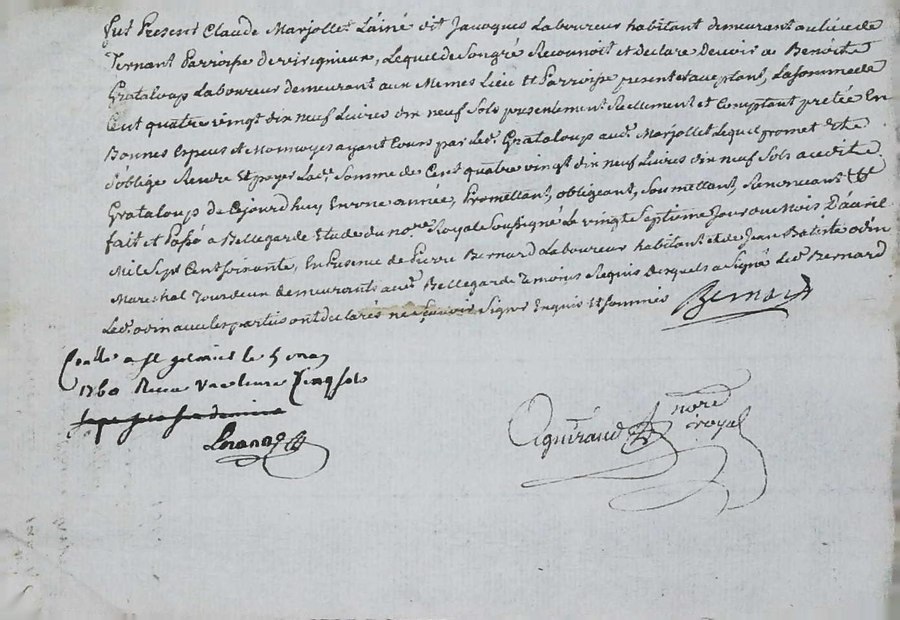 fut Present Claude Marjollet Lainé dit Jacoques Laboureur habitant demeurant au lieu de
Ternant Parroisse de virignieux, Lequel de Son gré Reconnoit et declare Devoir a Benoite
Grataloup Laboureur demeurant aux Memes Lieu et Parroisse present et acceptant, La somme de
Cent quatre vingt dix neuf Livres dix neuf Sols presentement Reellement et Comptant pretée En
Bonnes Especes et Monnoyes ayant Cours par Led. Grataloup aud. Marjollet Lequel promet et
S'oblige Rendre Et payer Lad. Somme de Cent quatre vingt dix neuf Livres dix neuf Sols audit
Grataloup de Cejourd'huy En une année, Promettant, obligeant, Soumettant, Renonceant
fait et Passé a Bellegarde Etude du nore Royal Soussigné Le vingt Septieme Jour du Mois D'avril
Mil Sept Cent Soixante, En Presence de Pierre Bernard Laboureur habitant et de Jean Batiste odin
Marechal demeurants aud. Bellegarde Temoins Requis Desquels a Signé led. Bernard
Led. odin avec les parties ont declarés ne Sçavoir Signer Enquis Et Sommés
Bernard
Conllé a st galmier le 5 may
1760 Recu valeur Cinq sols
Aguiraud nore
royal